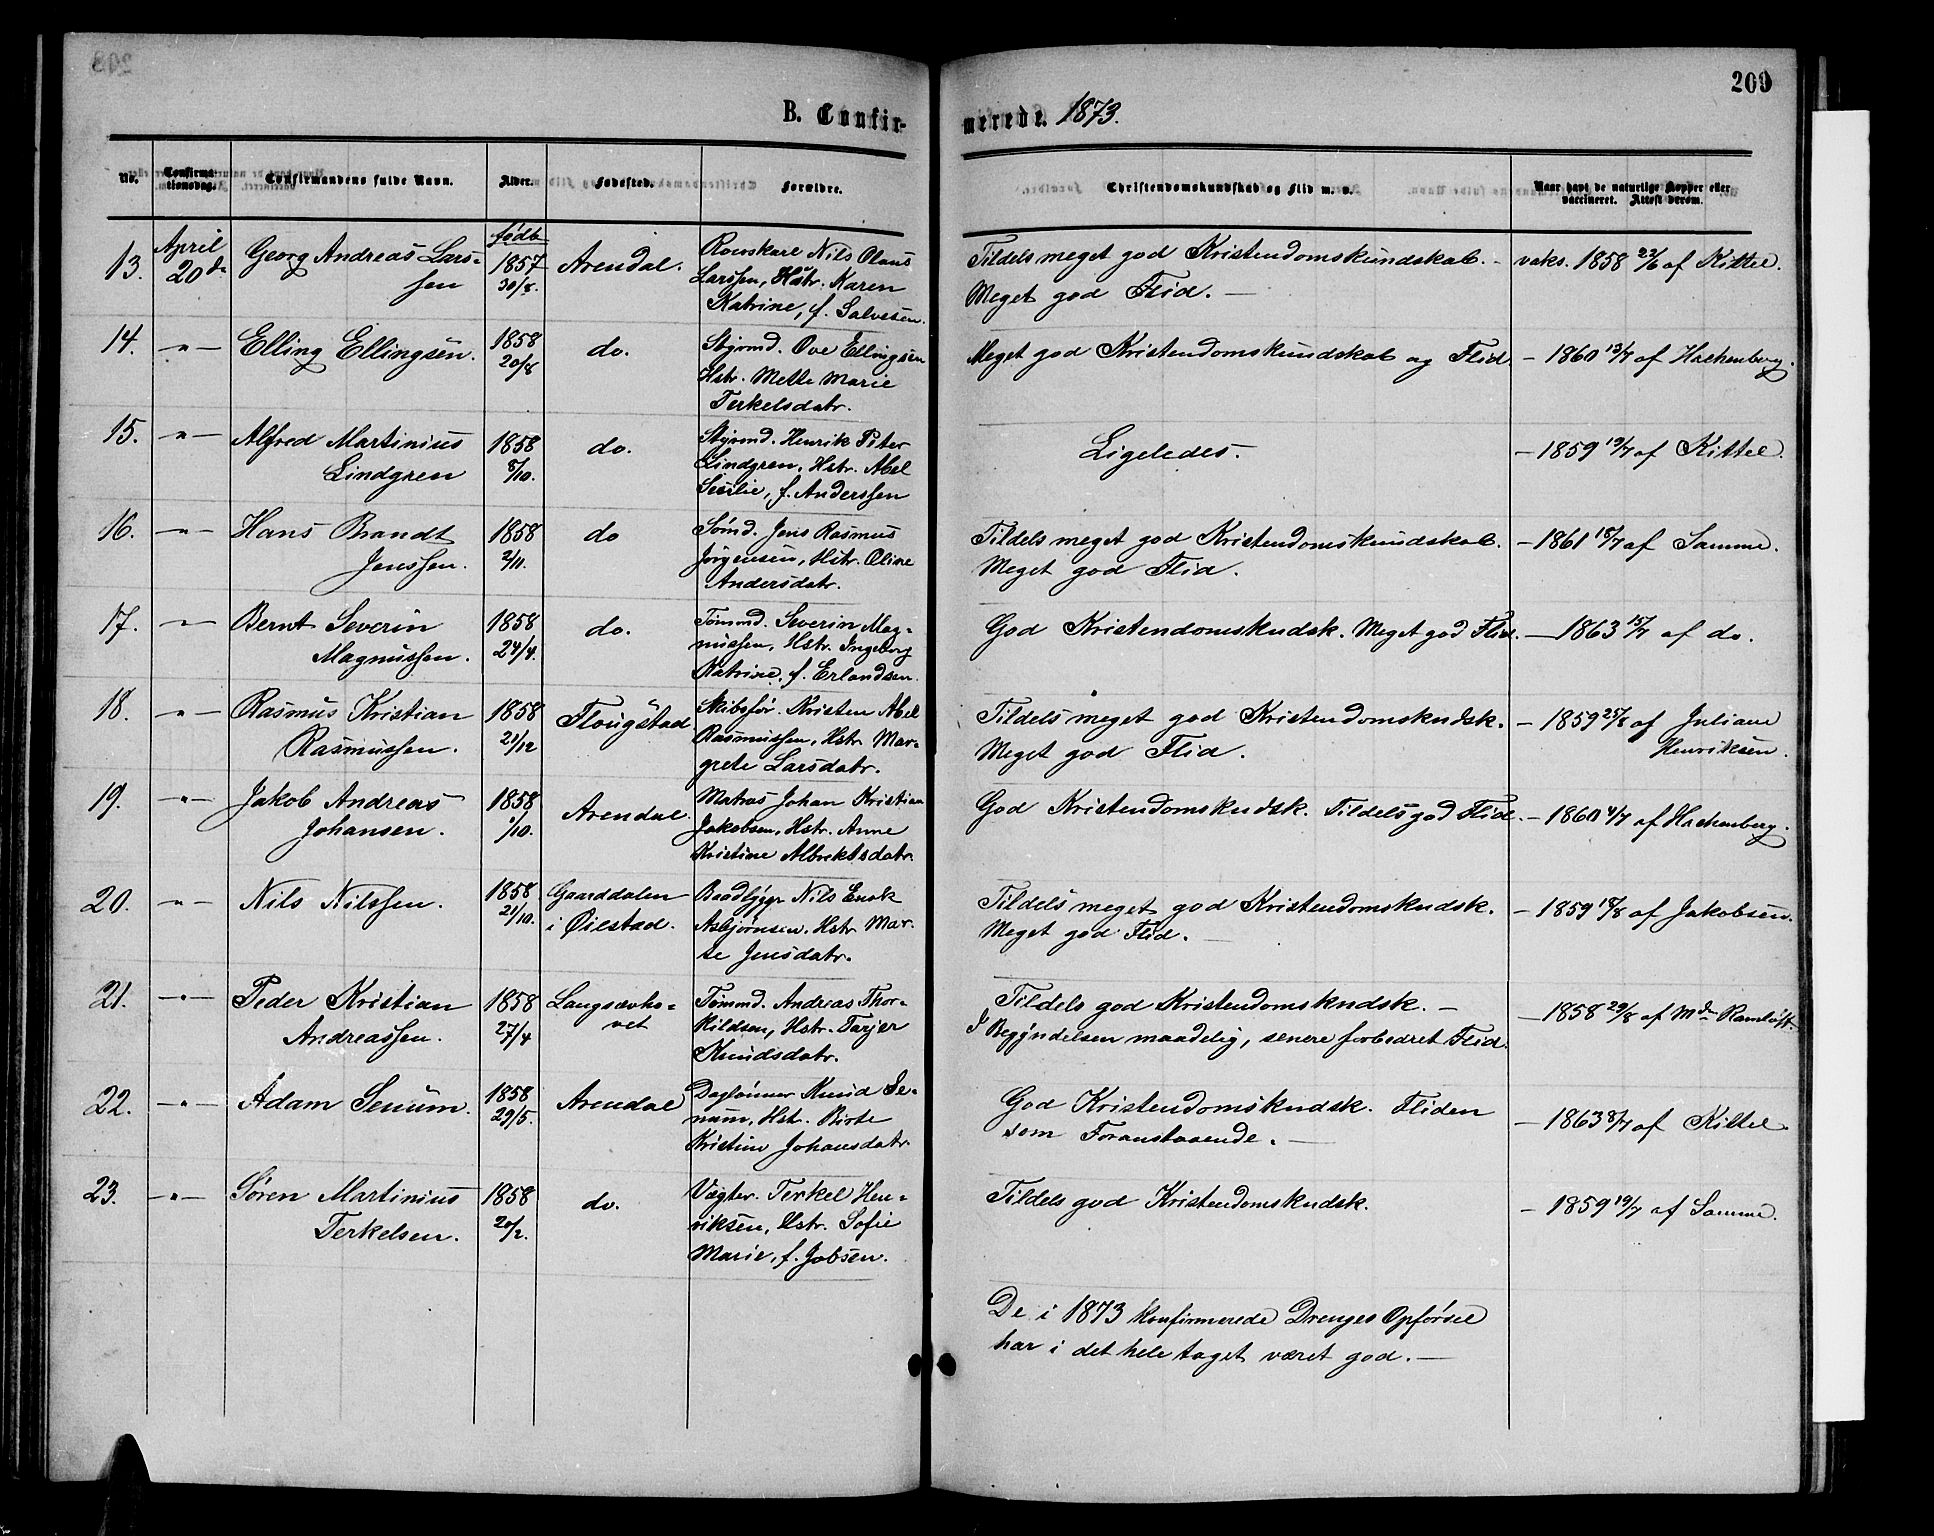 209
B. Confirmerede. 1873.
No. Confirmationsdag. Confirmandens fulde Navn. Alder. Fødested. Forældre. Christendomskundskab og Flid m. v. Naar havt de naturlige Kopper eller vaccineret. Attest derom.
13. April 20de Georg Andreas Larssen født 1857 30/8. Arendal. Rorskarl Nils Olaus Larssen, Hstr. Karen Katrine, f. Salvesen. Tildels meget god Kristendomskundskab. – Meget god Flid. – vaks. 1858 22/6 af Kittel.
14. –"– Elling Ellingsen. 1858 20/8 do. Styrmd. Ove Ellingsen Hstr. Mette Marie Terkelsdatr. Meget god Kristendomskundskab og Flid. – 1860 13/7 af Hachenberg.
15. –"– Alfred Martinius Lindgren 1858 8/10. do. Styrmd. Henrik Peter Lindgren, Hstr. Abel Secilie, f. Anderssen Ligeledes. – 1859 19/7 af Kittel.
16. –"– Hans Brandt Jenssen. 1858 2/11. do Sømd. Jens Rasmus Jørgensen, Hstr. Oline Andersdatr. Tildels meget god Kristendomskundskab. Meget god Flid. – 1861 18/7 af Samme.
17. –"– Bernt Severin Magnussen. 1858 24/4. do. Tømmd. Severin Magnussen, Hstr. Ingeborg Katrine, f. Erlandsen. God Kristendomskndsk. Meget god Flid. – 1863 15/7 af do.
18. –"– Rasmus Kristian Rasmussen. 1858 21/12 Flougstad Skibsfør. Kristen Abel Rasmussen, Hstr. Margrete Larsdatr. Tildels meget god Kristendomskndsk. Meget god Flid. – 1859 25/8 af Juliane Henriksen.
19. –"– Jakob Andreas Johansen. 1858 1/10. Arendal. Matros Johan Kristian Jakobsen, Hstr. Anne Kristine Albrektsdatr. God Kristendomskndsk. Tildels god Flid. – 1860 4/7 af Hachenberg.
20. –"– Nils Nilssen. 1858 21/10. Gaarddalen i Øiestad. Baadbygr. Nils Enok Asbjørnsen, Hstr. Marte Jensdatr. Tildels meget god Kristendomskndsk. Meget god Flid. – – 1859 18/8 af Jakobsen.
21. –"– Peder Kristian Andreassen. 1858 27/4 Langsævhovet Tømmd. Andreas Thorkildsen, Hstr. Tarjer Knudsdatr. Tildels god Kristendomskndsk. – I Begyndelsen maadelig, senere forbedret Flid. – 1858 29/8 af Mde Ramløft.
22. –"– Adam Senum. 1858 29/5. Arendal Daglønner Knud Senum, Hstr. Birte Kristine Johansdatr. God Kristendomskndsk. Fliden som Foranstaaende. – – 1863 8/7 af Kittel.
23. –"– Søren Martinius Terkelsen. 1858 20/2. do. Vægter. Terkel Henriksen, Hstr. Sofie Marie, f. Jobsen. Tildels god Kristendomskndsk. – 1859 19/7 af Samme.
De i 1873 konfirmerede Drenges Opførsel
har i det hele taget været god. –